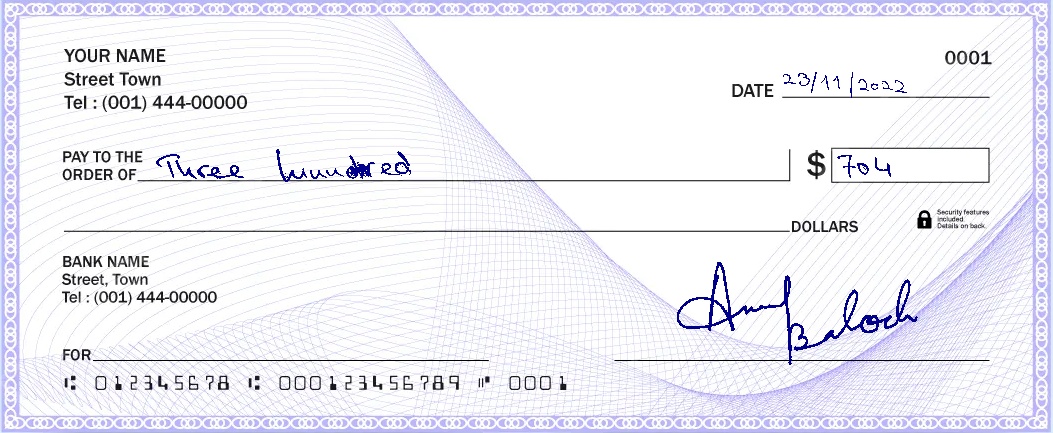 YOUR NAME
0001
Street Town
DATE 23/11/2022
Tel : (001) 444-00000
PAY TO THE
ORDER OF Three hundred $ 704
DOLLARS
Security features
included.
Details on back.
BANK NAME
Street, Town
Tel : (001) 444-00000
Baloch
FOR
⑆ 012345678 ⑆ 000123456789 ⑈ 0001